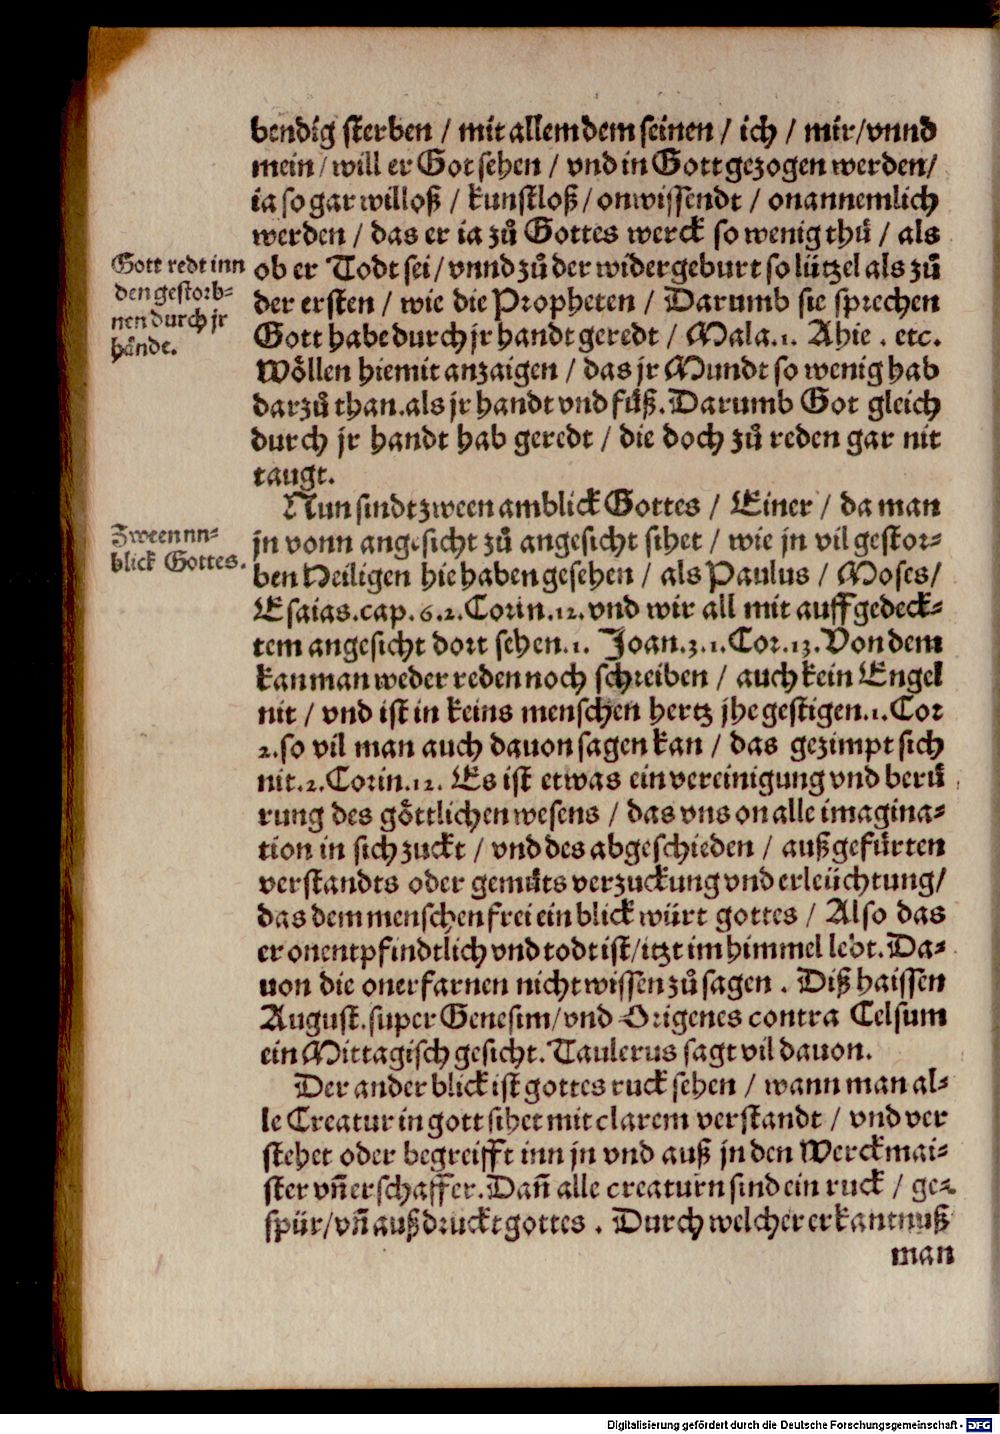 bendig sterben / mit allem dem seinen / ich / mir / vnnd
mein / will er Got sehen / vnd in Gott gezogen werden /
ia so gar willoß / kunstloß / onwissendt / onannemlich
werden / das er ia zů Gottes werck so wenig thů / als
ob er Todt sei / vnnd zů der widergeburt so lützel als zů
der ersten / wie die Propheten / Darumb sie sprechen
Gott habe durch jr handt geredt / Mala.1. Ahie . etc.
Wöllen hiemit anzaigen / das jr Mundt so wenig hab
darzů than.als jr handt vnd fůß. Darumb Got gleich
durch jr handt hab geredt / die doch zů reden gar nit
taugt.
Gott redt inn
den gestorb-
nen durch jr
hände.
Nun sindt zween amblick Gottes / Einer / da man
jn vonn angesicht zů angesicht sihet / wie jn vil gestor-
ben Heiligen hie haben gesehen / als Paulus / Moses /
Esaias.cap.6.2.Corin.12.vnd wir all mit auffgedeck-
tem angesicht dort sehen.1. Joan.3.1.Cor.13. Von dem
kan man weder reden noch schreiben / auch kein Engel
nit / vnd ist in keins menschen hertz jhe gestigen.1.Cor
2.so vil man auch dauon sagen kan / das gezimpt sich
nit.2.Corin.12. Es ist etwas ein vereinigung vnd berů
rung des göttlichen wesens / das vns on alle imagina-
tion in sich zuckt / vnd des abgeschieden / außgefürten
verstandts oder gemüts verzuckung vnd erleüchtung /
das dem menschen frei ein blick würt gottes / Also das
er onentpfindtlich vnd todt ist / itzt im himmel lebt. Da-
uon die onerfarnen nicht wissen zů sagen . Diß haissen
August.super Genesim / vnd Origenes contra Celsum
ein Mittagisch gesicht. Taulerus sagt vil dauon.
Zween nn-
blick Gottes.
Der ander blick ist gottes ruck sehen / wann man al-
le Creatur in gott sihet mit clarem verstandt / vnd ver
stehet oder begreifft inn jn vnd auß jn den Werckmai-
ster vñ erschaffer. Dañ alle creaturn sind ein ruck / ge-
spür / vñ außdruckt gottes . Durch welcher erkantnuß
man
Digitalisierung gefördert durch die Deutsche Forschungsgemeinschaft - DFG